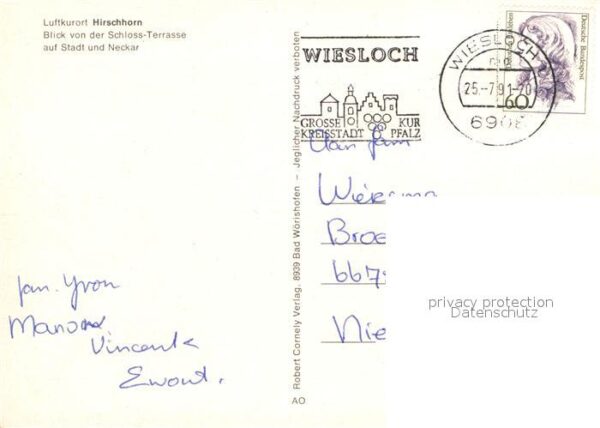 Luftkurort Hirschhorn
Blick von der Schloss-Terrasse
auf Stadt und Neckar
Jan. Yvon
Vincent
Ewout.
Robert Cornely Verlag, 8939 Bad Wörishofen – Jeglicher Nachdruck verboten
AO
WIESLOCH
GROSSE KUR
KREISSTADT PFALZ
WIESLOCH
25.-7.91-20
6908
Deutsche Bundespost
60
Aan fam
Broe
667
Nie
privacy protection
Datenschutz